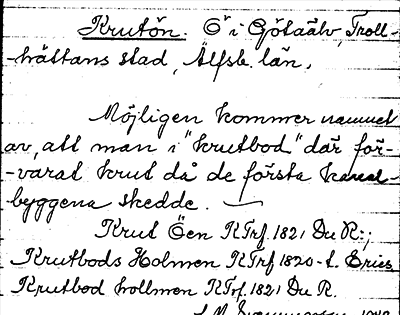 Krutön. Ö i Götaälv, Troll-
-hättans stad, Älfsb. län.
Möjligen kommer namnet
av, att man i "krutbod" där för-
-varat krut då de första kanal-
byggena skedde.
Krut Öen KTrf. 1821 Du R:;
Krutbods Holmen KTrf 1820-t. Eries
Krutbod hollmen KTrf. 1821 Du R.